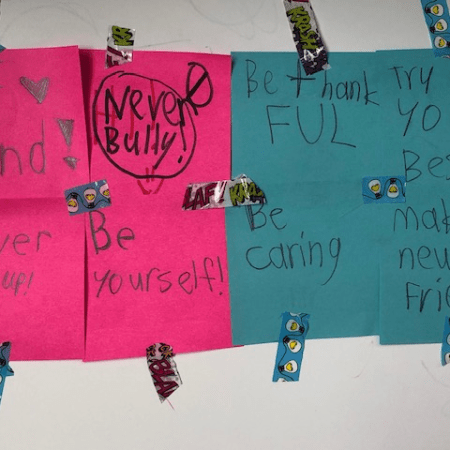 nd!
Never
Bully!
Be thank
FUL
Try
YO
Bes
ver
up!
Be
yourself!
Be
caring
mak
new
Frie